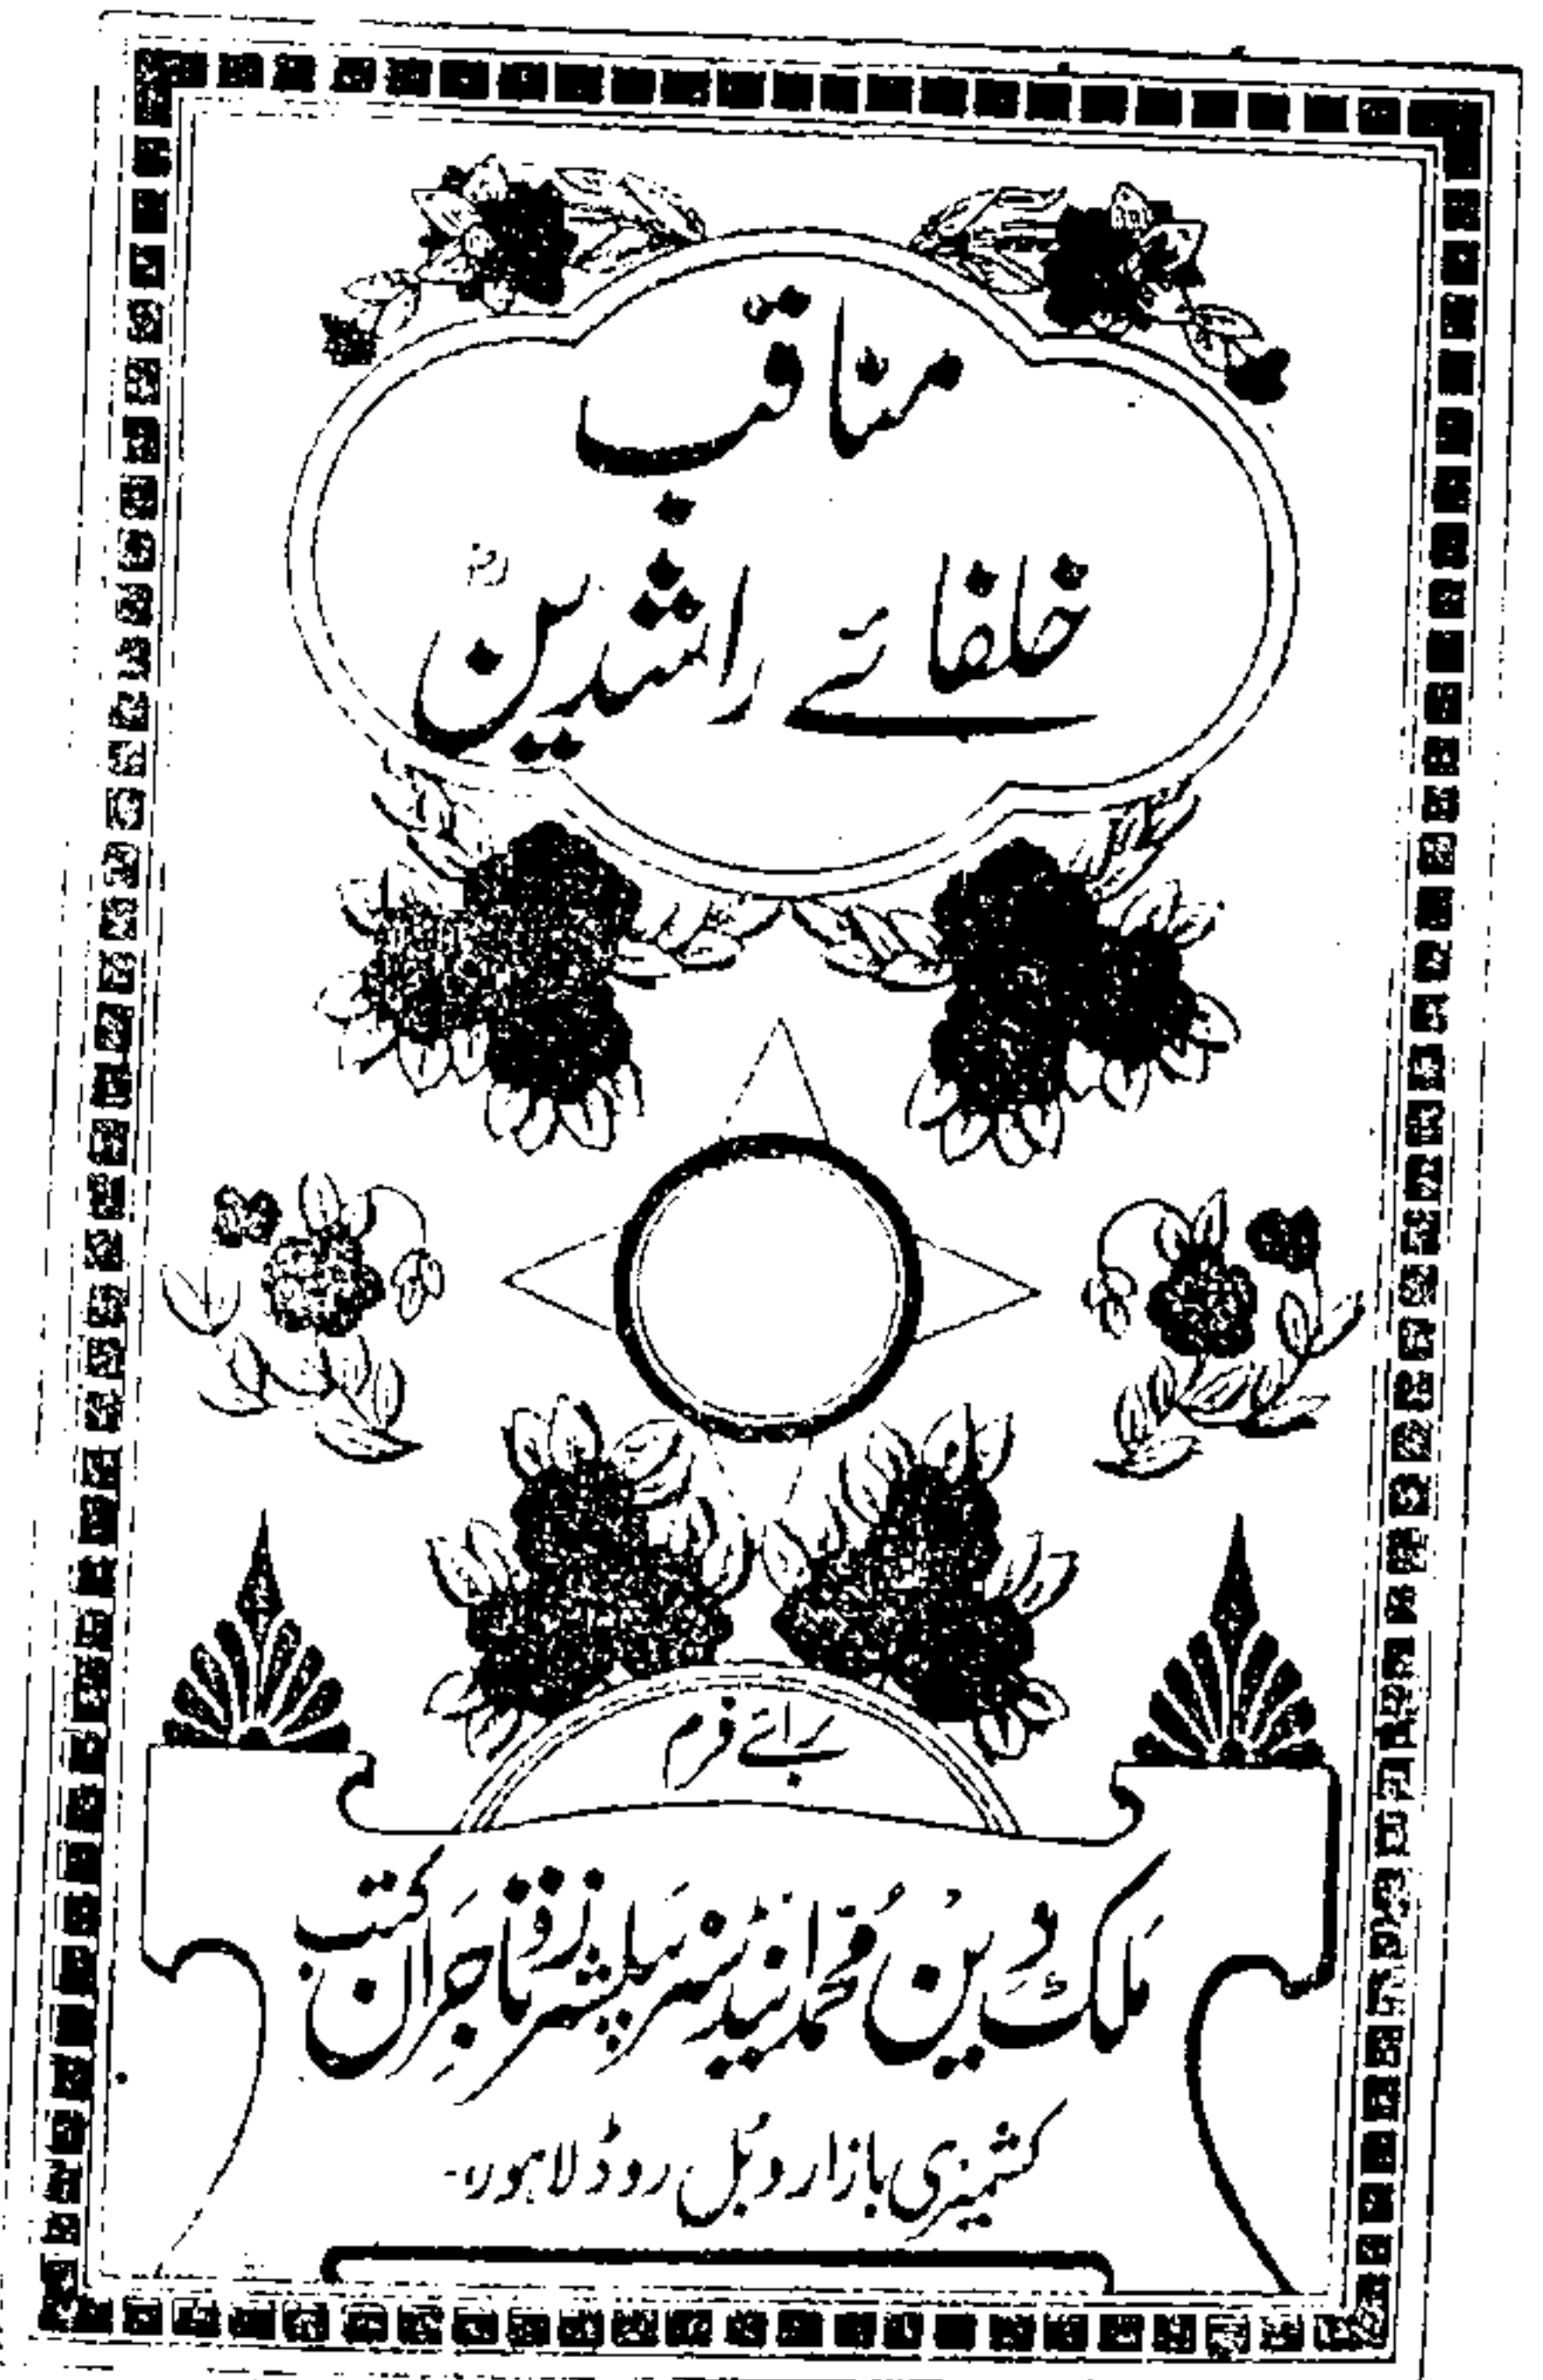 مناقب
خلفائے راشدینؓ
برائے فرم
ملک دین محمد اینڈ سنز پبلشرز و تاجران کتب
کشمیری بازار و بل روڈ لاہور۔